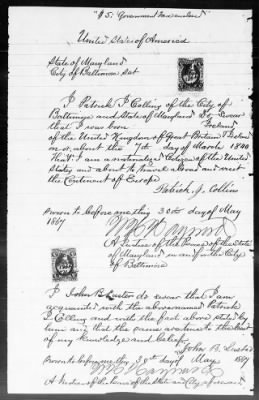 "$5. Government tax enclosed"
United States of America
State of Maryland
City of Baltimore Sct
I Patrick J Collins of the City of
Baltimore and State of Maryland do swear
that I was born Ireland
of the United Kingdom of Great Britain & Ireland
on or about the 7th day of March 1840
that I am a naturalized Citizen of the United
States and about to travel abroad and visit
the Continent of Europe
Patrick J. Collins
Sworn to before me this 30th day of May
1867
A Justice of the Peace of the State
of Maryland in and for the City
of Baltimore
I John B. do swear that I am
acquainted with the above named Patrick
J Collins and with the fact above stated by
him and that the same are true to the best
of my knowledge and belief
John B.
Sworn to before me this 30th day of May 1867
A Justice of the Peace of the State and City aforesaid